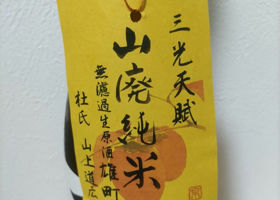 三光天賦
山廃純米
無濾過生原酒雄町
杜氏 山上道広